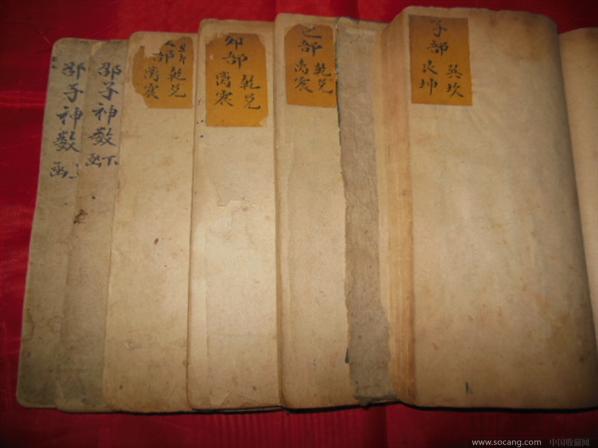 邵子神数
邵子神数
函下
部
乾兑
离震
卯部
乾兑
离震
巳部
乾兑
离震
子部
巽坎
艮坤
www.socang.com 中国收藏网